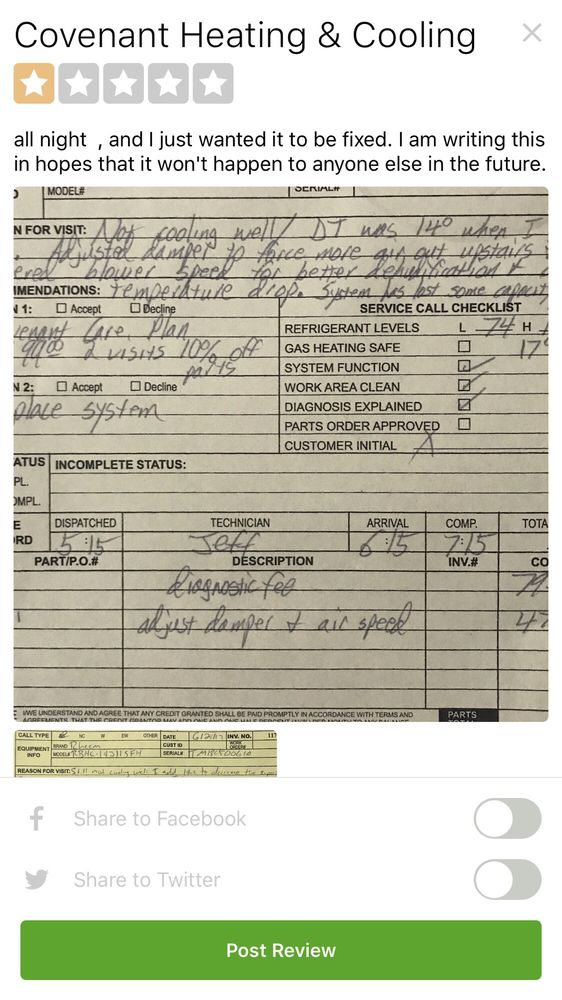 Covenant Heating & Cooling
all night , and I just wanted it to be fixed. I am writing this
in hopes that it won't happen to anyone else in the future.
MODEL# SERIAL#
N FOR VISIT: Not cooling well/ DT was 14° when I
Adjusted damper to force more air out upstairs
ered blower speed for better dehumification &
MMENDATIONS: temperature drop. System has lost some capacity
N 1: Accept Decline SERVICE CALL CHECKLIST
enant Care Plan REFRIGERANT LEVELS L 74 H
99.00 2 visits 10% off GAS HEATING SAFE 17
parts SYSTEM FUNCTION
N 2: Accept Decline WORK AREA CLEAN
place system DIAGNOSIS EXPLAINED
PARTS ORDER APPROVED
CUSTOMER INITIAL X
ATUS INCOMPLETE STATUS:
PL.
OMPL.
E DISPATCHED TECHNICIAN ARRIVAL COMP. TOTA
RD 5:15 Jeff 6:15 7:15
PART/P.O.# DESCRIPTION INV.# CO
diagnostic fee 79
adjust damper & air speed 47
I/WE UNDERSTAND AND AGREE THAT ANY CREDIT GRANTED SHALL BE PAID PROMPTLY IN ACCORDANCE WITH TERMS AND
PARTS
CALL TYPE NC W EW OTHER DATE 6/21/17 INV. NO. 117
EQUIPMENT INFO BRAND Rheem CUST ID WORK ORDER#
MODEL# SERIAL#
REASON FOR VISIT: Still not cooling well.
Share to Facebook
Share to Twitter
Post Review